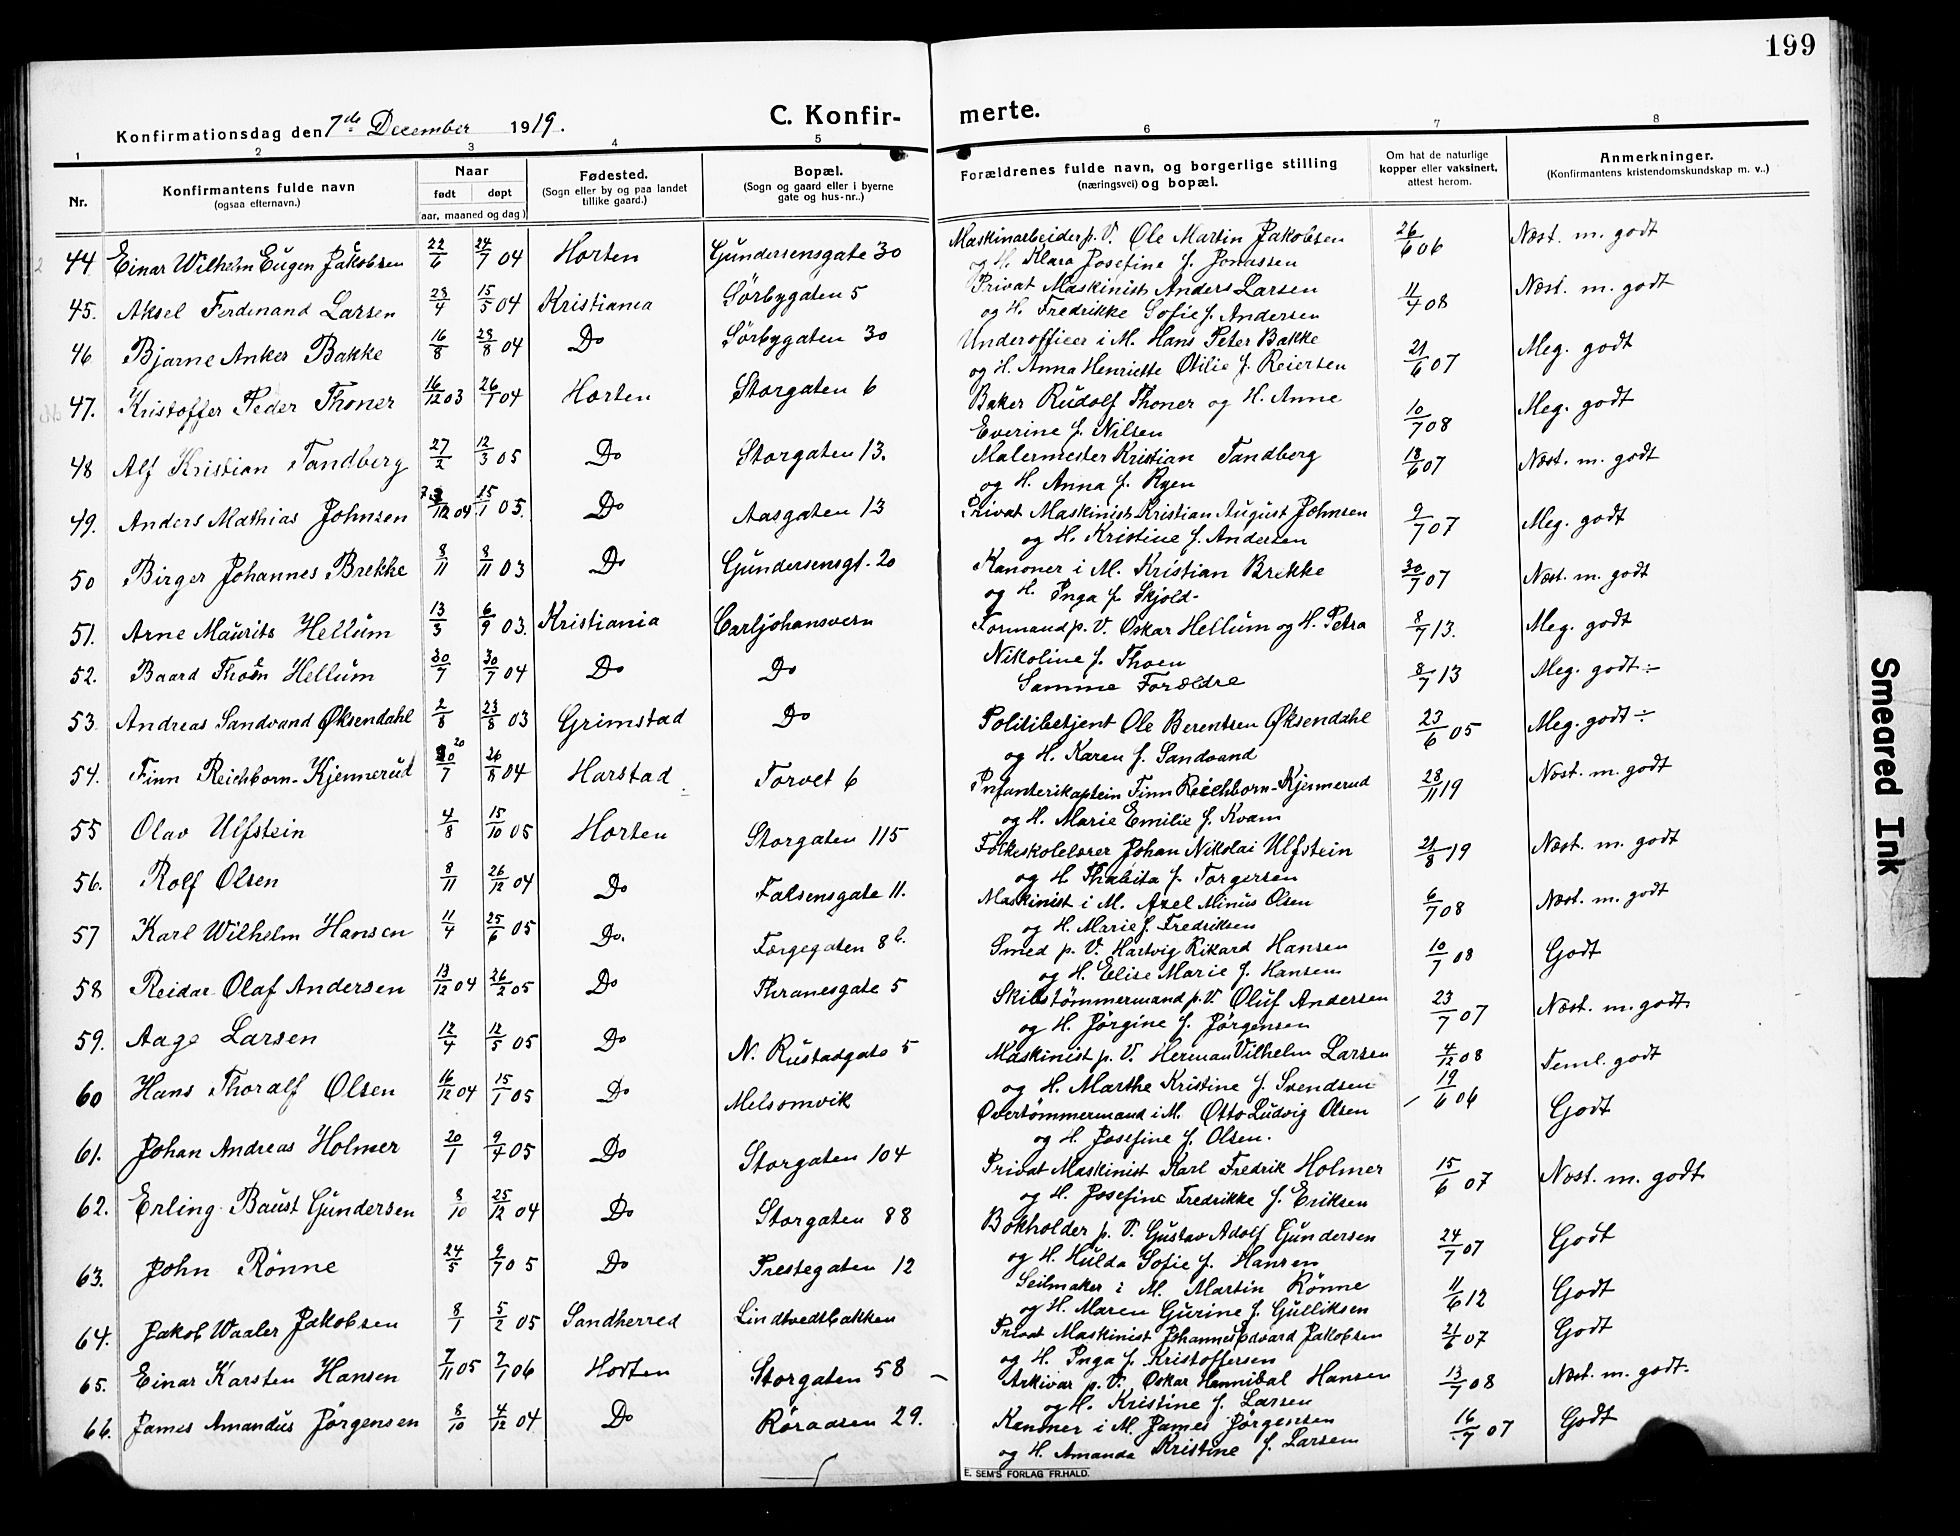 199
Konfirmationsdag den 7de December 1919.
C. Konfir- merte.
1 2 3 4 5 6 7 8
Nr.
Konfirmantens fulde navn
(ogsaa efternavn.)
Naar
født døpt
(aar, maaned og dag)
Fødested.
(Sogn eller by og paa landet
tillike gaard.)
Bopæl.
(Sogn og gaard eller i byerne
gate og hus-nr..)
Forældrenes fulde navn, og borgerlige stilling
(næringsvei) og bopæl.
Om hat de naturlige
kopper eller vaksinert,
attest herom.
Anmerkninger.
(Konfirmantens kristendomskundskap m. v..)
44 Einar Wilhelm Eugen Jakobsen 22/6 24/7 04 Horten Gundersensgate 30 Maskinarbeider p. V. Ole Martin Jakobsen 26/6 06 Næst. m. godt
og H. Klara Josefine f. Jonassen
45. Aksel Ferdinand Larsen 28/4 15/5 04 Kristiania Sörbygaten 5 Privat Maskinist Anders Larsen 11/7 08 Næst. m. godt
og H. Fredrikke Sofie f. Andersen
46 Bjarne Anker Bakke 16/8 28/8 04 Do Sørbygaten 30 Underofficer i M. Hans Peter Bakke 21/6 07 Meg. godt
og H. Anna Henriette Otilie f. Reiersen
47. Kristoffer Peder Thoner 16/12 03 26/7 04 Horten Storgaten 6 Baker Rudolf Thoner og H. Anne 10/7 08 Meg. godt
Everine f. Nilsen
48 Alf Kristian Tandberg 27/2 12/3 05 Do Storgaten 13. Malermester Kristian Tandberg 18/6 07 Næst. m. godt
og H. Anna f. Ryen
49. Anders Mathias Johnsen /12 04 15/1 05. Do Aasgaten 13 Privat Maskinist Kristian August Johnsen 9/7 07 Meg. godt
og H. Kristine f. Andersen
50 Birger Johannes Brekke 8/11 8/11 03 Do Gundersensgt. 20 Kanoner i M. Kristian Brekke 30/7 07 Næst. m. godt
og H. Inga f. Skjold-
51. Arne Maurits Hellum 13/3 6/9 03. Kristiania Carljohansvern Formand p. V. Oskar Hellum og H. Petra 8/7 13. Meg. godt
Nikoline f. Thoen
52. Baard Thoen Hellum 30/7 30/7 04 Do Do Samme Forældre 8/7 13 Meg. godt ÷
53 Andreas Sandvand Øksendahl 2/8 23/8 03 Grimstad Do Politibetjent Ole Berentsen Øksendahl 23/6 05 Meg. godt ÷
og H. Karen f. Sandvand
54. Finn Reichborn-Kjennerud 20/7 26/8 04 Harstad Torvet 6 Infanterikaptein Finn Reichborn-Kjennerud 28/11 19 Næst. m. godt
og H. Marie Emilie f. Kvam
55 Olav Ulfstein 4/8 15/10 05 Horten Storgaten 115 Folkeskolelærer Johan Nikolai Ulfstein 21/8 19 Næst. m. godt
og H Thabita f. Torgersen
56. Rolf Olsen 8/11 26/12 04 Do Falsensgate 11. Maskinist i M. Axel Minus Olsen 6/7 08 Næst. m. godt
og H. Marie f. Fredriksen
57 Karl Wilhelm Hansen 11/4 25/6 05 Do. Færgegaten 8b. Smed p. V. Hartvig Rikard Hansen 10/7 08 Godt
og H. Elise Marie f. Hansen
58 Reidar Olaf Andersen 13/12 04 26/2 05 Do Thranesgate 5 Skibstömmermand p. V. Oluf Andersen 23/7 07 Næst. m. godt.
og H. Jörgine f. Jörgensen
59. Aage Larsen 12/4 12/5 05 Do N. Rustadgate 5 Maskinist p. V. Herman Vilhelm Larsen 4/12 08 Teml. godt
og H. Marthe Kristine f. Svendsen
60 Hans Thoralf Olsen 16/12 04 15/1 05 Do Melsomvik Overtömmermand i M. Otto Ludvig Olsen 19/6 06 Godt
og H. Josefine f. Olsen.
61. Johan Andreas Holmer 20/1 9/4 05 Do Storgaten 104 Privat Maskinist Karl Fredrik Holmer 15/6 07 Næst. m. godt.
og H. Josefine Fredrikke f. Eriksen
62. Erling Baust Gundersen 8/10 25/12 04 Do Storgaten 88 Bokholder p. V. Gustav Adolf Gundersen 24/7 07 Godt
og H. Hulda Sofie f. Hansen
63. John Rönne 24/5 9/7 05 Do Prestegaten 12 Seilmaker i M. Martin Rönne 11/6 12 Godt
og H. Maren Gurine f. Gulliksen
64. Jakob Waaler Jakobsen 8/1 5/2 05 Sandherred Lindtvedtbakken Privat Maskinist Johannes Edvard Jakobsen 21/6 07 Godt
og H. Inga f. Kristoffersen
65. Einar Karsten Hansen 7/11 05 7/1 06 Horten Storgaten 58 Arkivar p. V. Oskar Hannibal Hansen 13/7 08 Næst. m. godt.
og H. Kristine f. Larsen
66. James Amandus Jörgensen 8/10 4/12 04 Do Röraasen 29. Kanoner i M. James Jörgensen 16/7 07 Godt
og H. Amanda Kristine f. Larsen
E. SEM'S FORLAG FR.HALD.
Smeared Ink